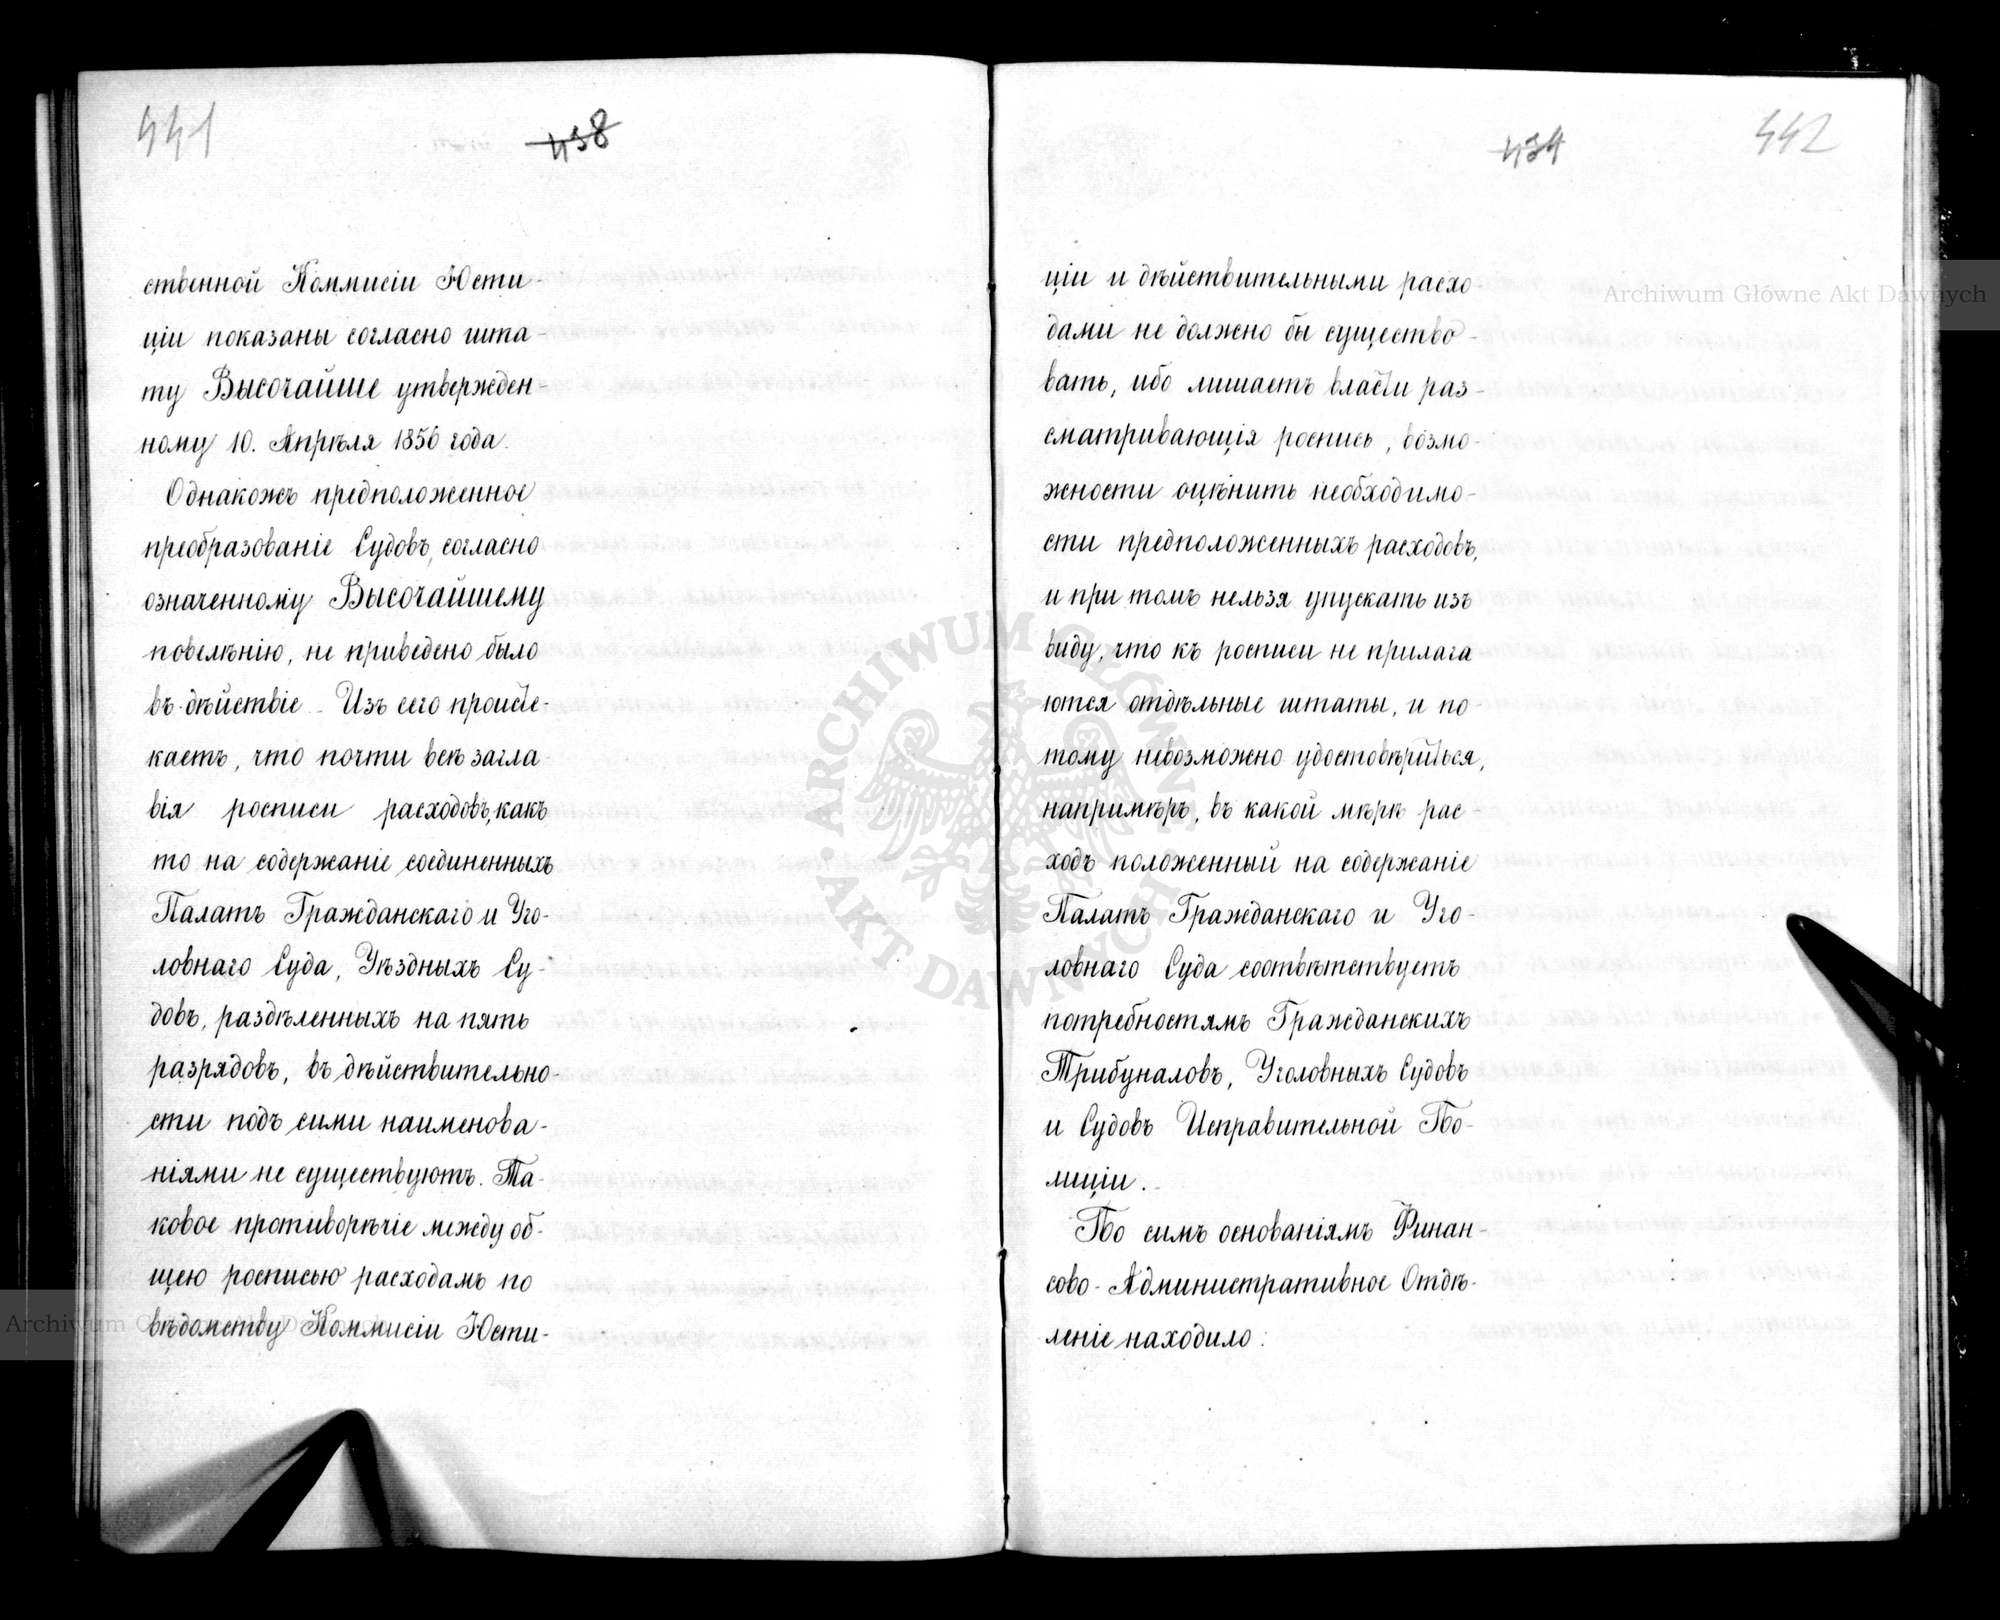 441
438
ственной Коммисіи Юсти-
ціи показаны согласно шта
ту Высочайше утвержден-
ному 10. Апрѣля 1856 года.
Однакожъ предположенное
преобразованіе Судовъ, согласно
означенному Высочайшему
повелѣнію, не приведено было
въ дѣйствіе. Изъ сего происте-
каетъ, что почти всѣ загла
вія росписи расходовъ, какъ
то на содержаніе соединенныхъ
Палатъ Гражданскаго и Уго-
ловнаго Суда, Уѣздныхъ Су-
довъ, раздѣленныхъ на пять
разрядовъ, въ дѣйствительно-
сти подъ сими наименова-
ніями не существуютъ. Та-
ковое противорѣчіе между об-
щею росписью расходамъ по
вѣдомству Коммисіи Юсти-
434
442
ціи и дѣйствительными расхо
дами не должно бы существо-
вать, ибо лишаетъ власти раз-
сматривающія роспись, возмо-
жности оцѣнить необходимо-
сти предположенныхъ расходовъ,
и при томъ нельзя упускать изъ
виду, что къ росписи не прилага
ются отдѣльные штаты, и по
тому невозможно удостовѣриться,
напримѣръ, въ какой мѣрѣ рас
ходъ положенный на содержаніе
Палатъ Гражданскаго и Уго-
ловнаго Суда соотвѣтствуетъ
потребностямъ Гражданскихъ
Трибуналовъ, Уголовныхъ Судовъ
и Судовъ Исправительной По-
лиціи.
По симъ основаніямъ Финан-
сово-Административное Отдѣ-
леніе находило:
Archiwum Główne Akt Dawnych
ARCHIWUM GŁÓWNE
AKT DAWNYCH
Archiwum Główne Akt Dawnych